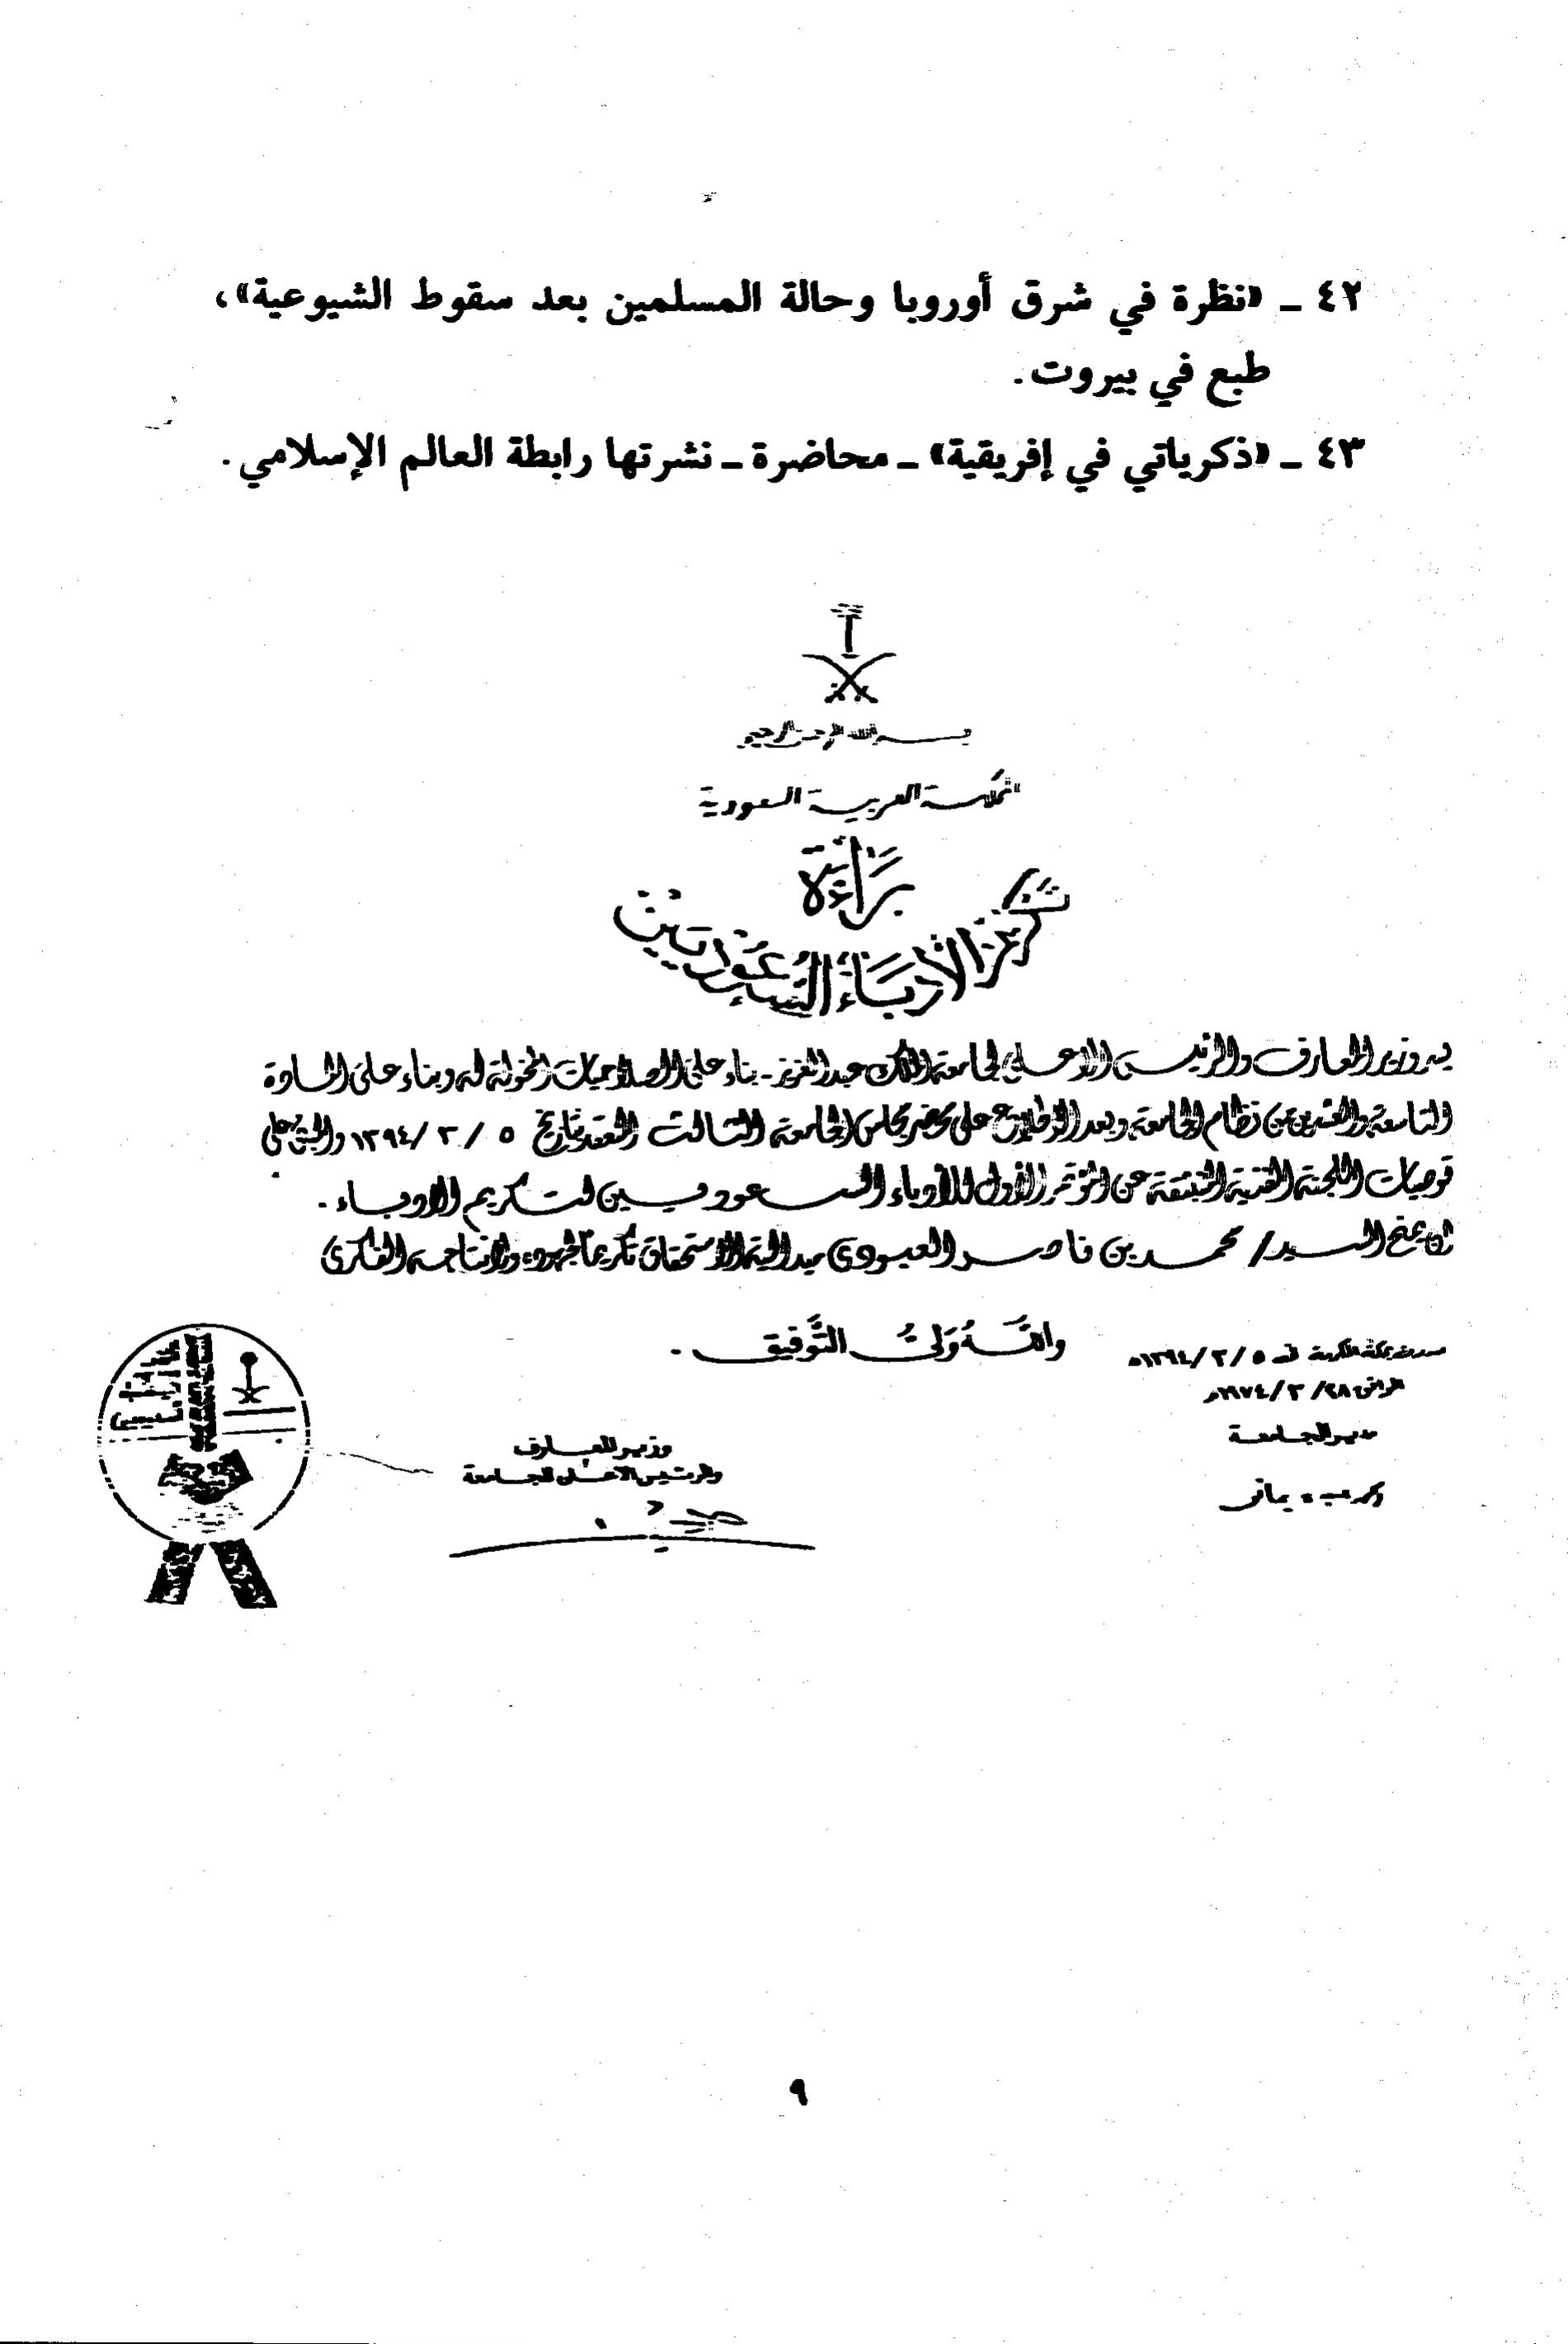 ٤٢ ـ «نظرة في شرق أوروبا وحالة المسلمين بعد سقوط الشيوعية»،
طبع في بيروت.
٤٣ ـ «ذكرياتي في إفريقية» ـ محاضرة ـ نشرتها رابطة العالم الإسلامي.
بسم الله الرحمن الرحيم
المملكة العربية السعودية
براءة
تكريم الأدباء السعوديين
وزير المعارف والرئيس الأعلى لجامعة الملك عبد العزيز ـ بناء على الصلاحيات المخولة له وبناء على المادة
التاسعة والعشرين من نظام الجامعة وبعد الاطلاع على محضر مجلس الجامعة الثالث المنعقد بتاريخ ٥ / ٣ / ١٣٩٤
توصيات اللجنة الفنية المنبثقة عن المؤتمر الأول للأدباء السعوديين لتكريم الأدباء.
السيد / محمد بن ناصر العبودي ميدالية الاستحقاق تكريماً لجهوده وإنتاجه الفكري
والله ولي التوفيق.
بمكة المكرمة في ٥ / ٣ / ١٣٩٤هـ
الموافق ٢٨ / ٣ / ١٩٧٤م
مدير الجامعة
وزير المعارف
والرئيس الأعلى للجامعة
يماني
٩